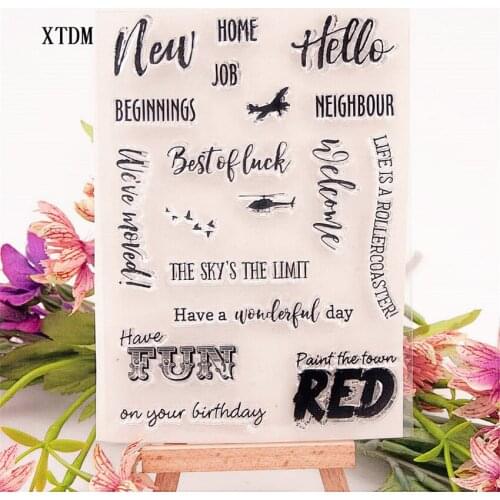 XTDM
New
HOME
Hello
JOB
BEGINNINGS
NEIGHBOUR
We've moved!
Best of luck
Welcome
LIFE IS A ROLLERCOASTER!
THE SKY'S THE LIMIT
Have a wonderful day
Have
FUN
on your birthday
Paint the town
RED